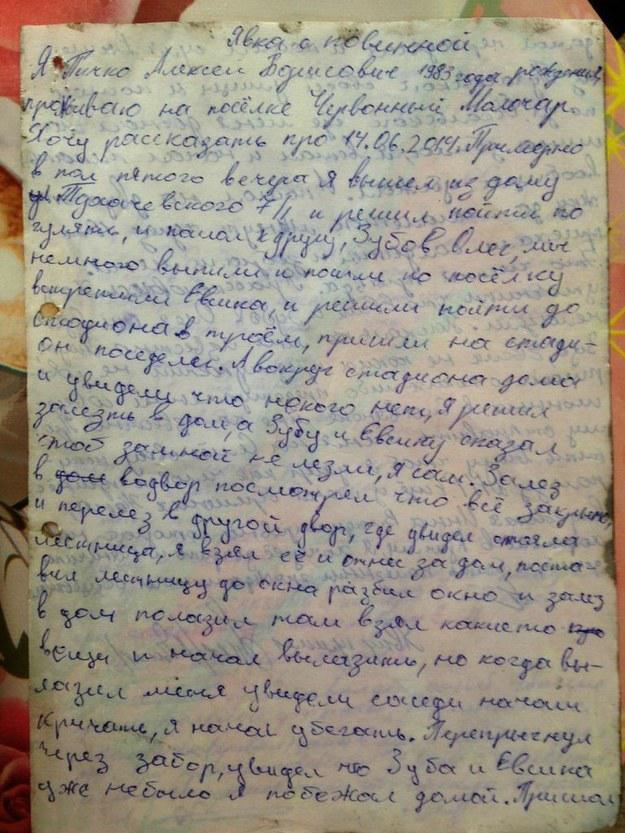 Явка с повинной
Я Тичко Алексей Борисович 1983 года рождения,
проживаю на посёлке Червонный Молочар
Хочу рассказать про 14.06.2014. Примерно
в пол пятого вечера я вышел из дому
ул. Тухачевского 7/1 и решил пойти по
гулять, и попал к другу, Зубов Олег, мы
немного выпили и пошли по посёлку
встретили Евсика, и решили пойти до
стадиона в троём, пришли на стади-
он поседели. А вокруг стадиона дома
и увидели что некого нет, я решил
залезть в дом, а Зубу и Евсику сказал
чтоб замной не лезли, я сам. Залез
в дом водвор посмотрел что всё закрыто,
и перелез в другой двор, где увидел стояла
лестница, я взял её и отнес за дом, поста-
вил лестницу до окна разбил окно и залез
в дом полазил там взял какието
вещи и начал вылазить, но когда вы-
лазил меня увидели соседи начали
кричать, я начал убегать. Перепрыгнул
через забор, увидел что Зуба и Евсика
уже небыло я побежал домой. Пришол